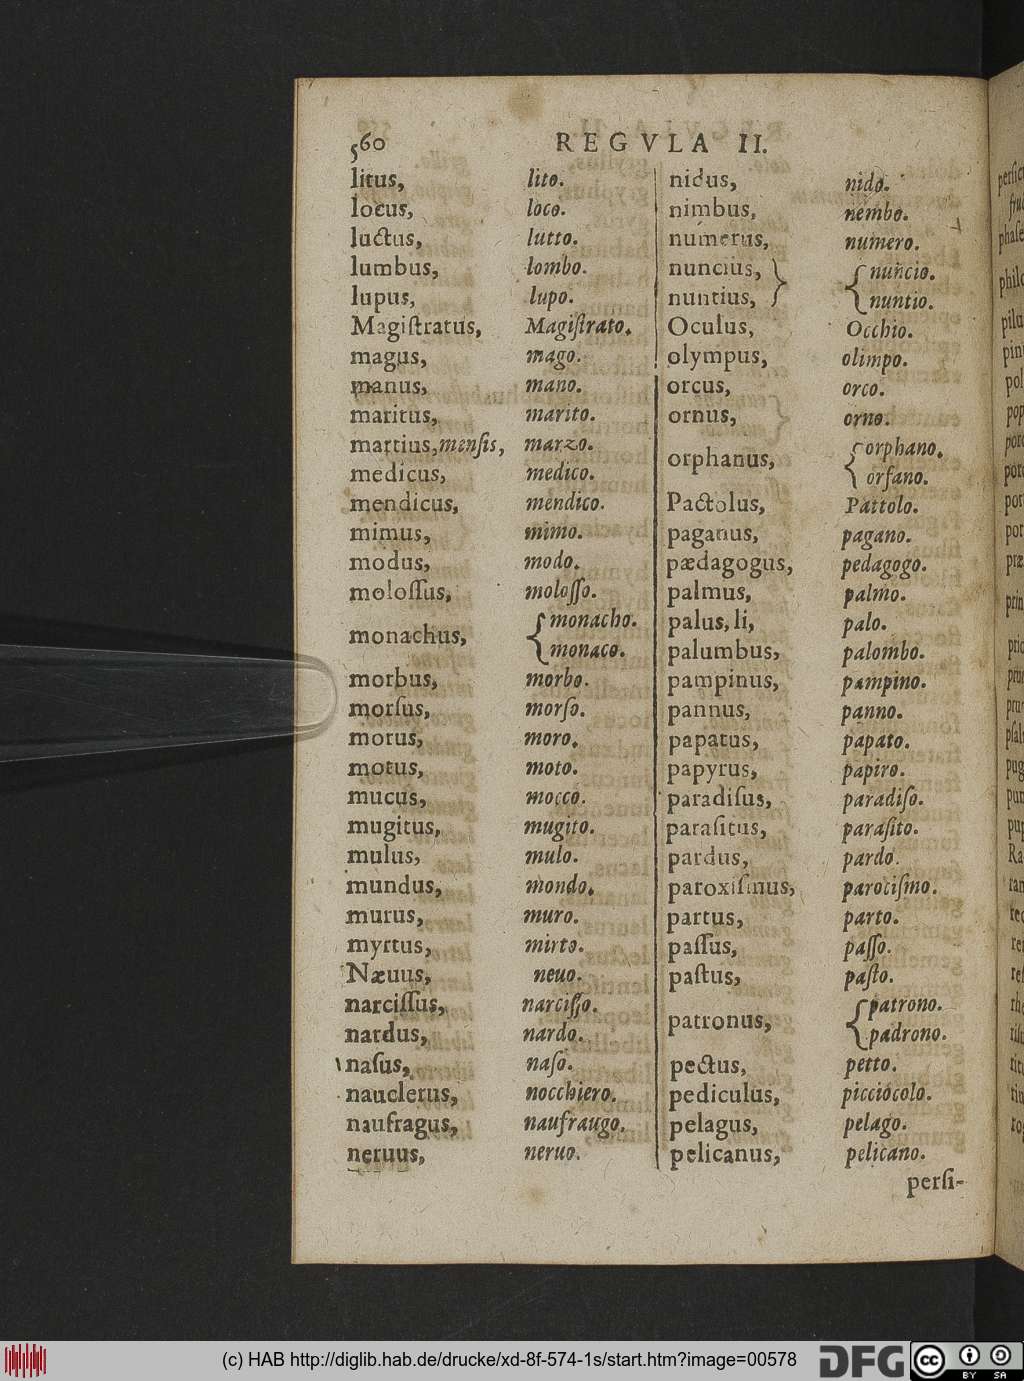 560 REGVLA II.
litus, lito.
locus, loco.
luctus, lutto.
lumbus, lombo.
lupus, lupo.
Magiſtratus, Magiſtrato.
magus, mago.
manus, mano.
maritus, marito.
martius, menſis, marzo.
medicus, medico.
mendicus, mendico.
mimus, mimo.
modus, modo.
moloſſus, moloſſo.
monachus, { monacho.
monaco.
morbus, morbo.
morſus, morſo.
morus, moro.
motus, moto.
mucus, mocco.
mugitus, mugito.
mulus, mulo.
mundus, mondo.
murus, muro.
myrtus, mirto.
Næuus, neuo.
narciſſus, narciſſo.
nardus, nardo.
naſus, naſo.
nauclerus, nocchiero.
naufragus, naufraugo.
neruus, neruo.
nidus, nido.
nimbus, nembo.
numerus, numero.
nuncius, } { nuncio.
nuntius, nuntio.
Oculus, Occhio.
olympus, olimpo.
orcus, orco.
ornus, orno.
orphanus, { orphano.
orfano.
Pactolus, Pattolo.
paganus, pagano.
pædagogus, pedagogo.
palmus, palmo.
palus, li, palo.
palumbus, palombo.
pampinus, pampino.
pannus, panno.
papatus, papato.
papyrus, papiro.
paradiſus, paradiſo.
paraſitus, paraſito.
pardus, pardo.
paroxiſmus, parociſmo.
partus, parto.
paſſus, paſſo.
paſtus, paſto.
patronus, { patrono.
padrono.
pectus, petto.
pediculus, picciocolo.
pelagus, pelago.
pelicanus, pelicano.
perſi-
(c) HAB http://diglib.hab.de/drucke/xd-8f-574-1s/start.htm?image=00578
DFG
cc BY SA